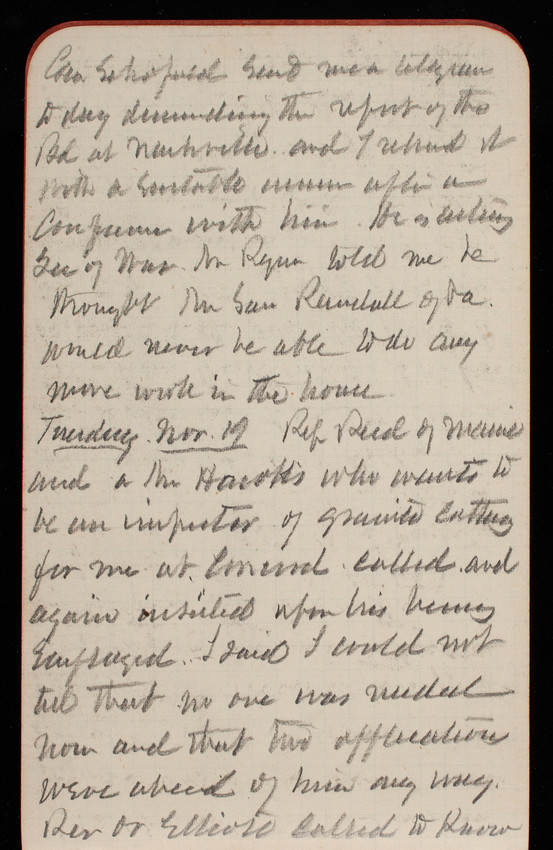 Gen Schofield Send me a telegram
to day demanding the report of the
Bd at Nashville and I retund it
with a suitable answer after a
Conference with him. He is acting
Sec of War. Mr Ryan told me he
thought Mr Sam Randall of Pa.
would never be able to do any
more work in the house
Tuesday Nov. 19 Rep Reed of Maine
and a Mr who wants to
be an inspector of granite Cutting
for me at Concord called and
again insisted upon his being
Engaged. I said I could not
tell that no one was needed
now and that two applications
were ahead of him any way.
Rev Dr Elliott called to Know